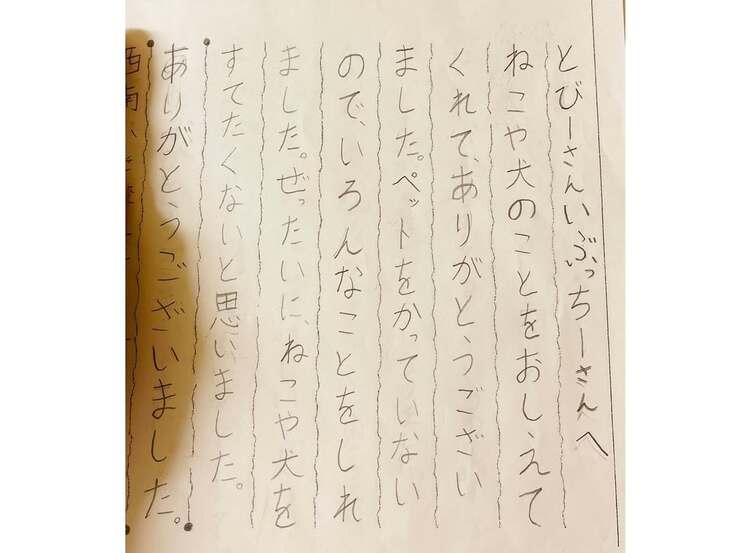 とびーさんいぶっちーさんへ
ねこや犬のことをおしえて
くれて、ありがとうござい
ました。ペットをかっていない
ので、いろんなことをしれ
ました。ぜったいに、ねこや犬を
すてたくないと思いました。
ありがとうございました。